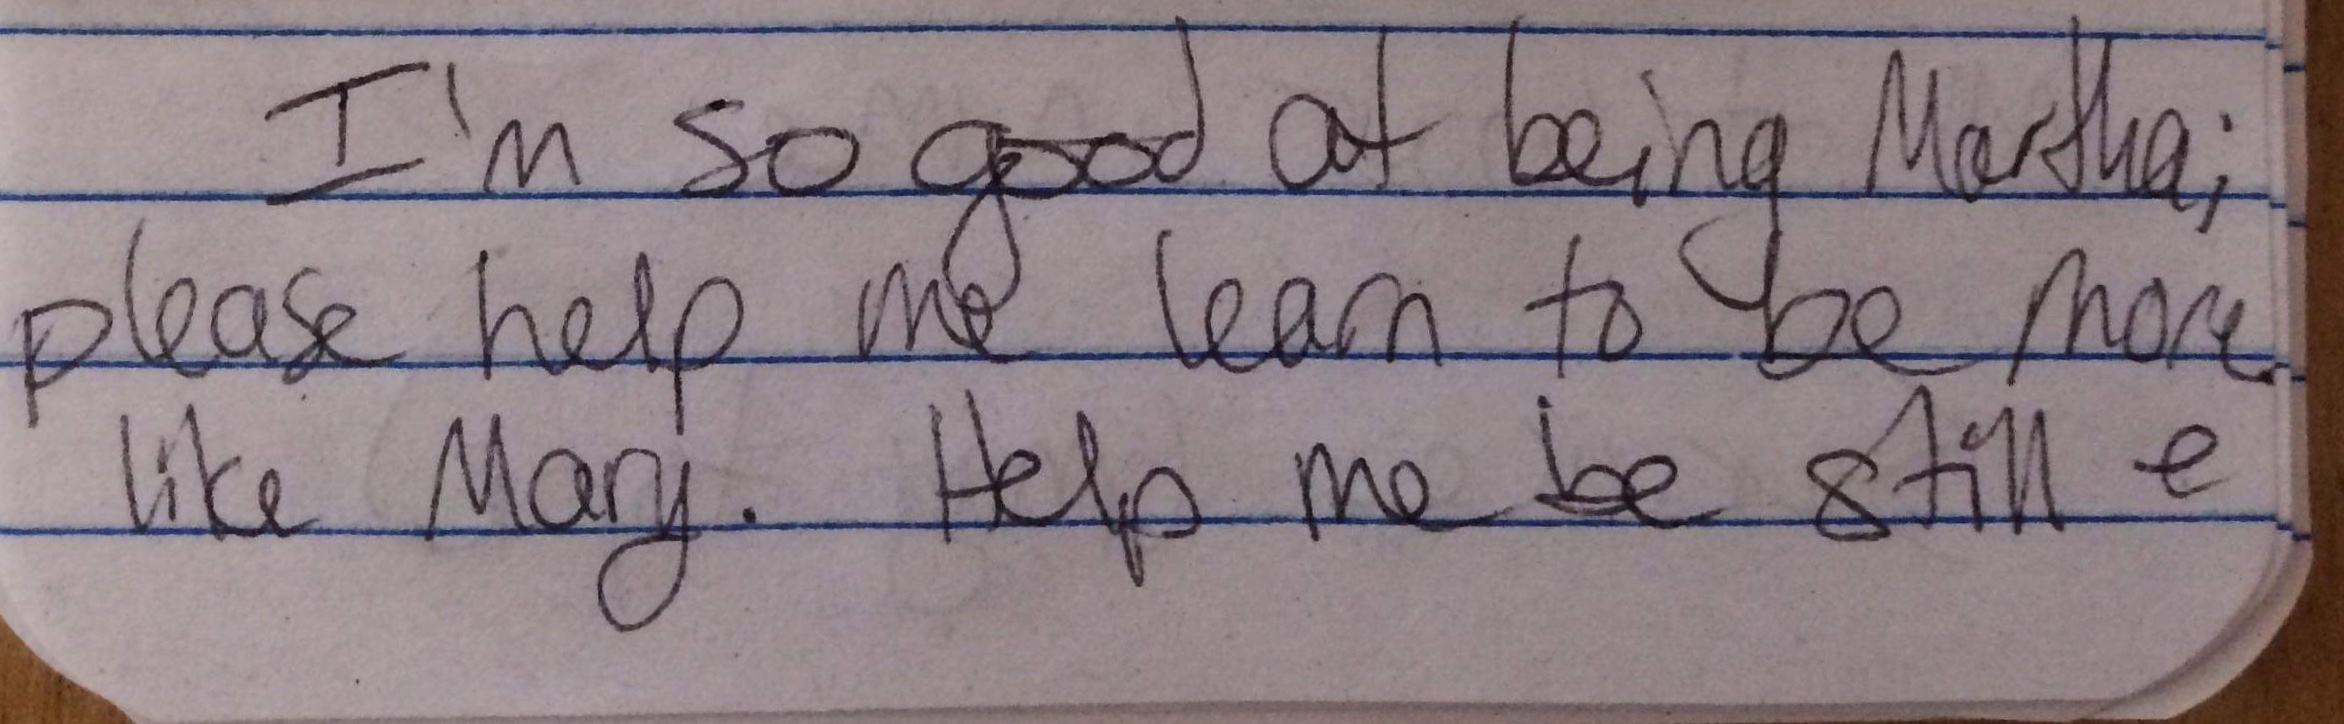 I'm so good at being Martha;
please help me learn to be more
like Mary. Help me be still e